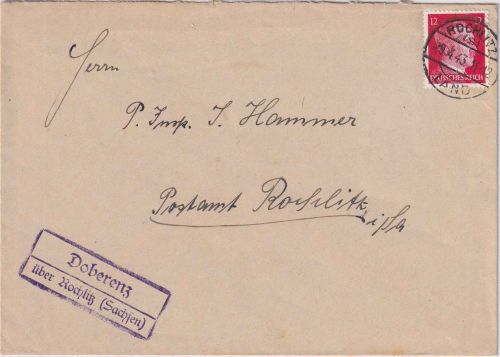 12
DEUTSCHES REICH
ROCHLITZ
LAND
Herrn
P. Insp. J. Hammer
Postamt Rochlitz
i/Sa
Doberenz
über Rochlitz (Sachsen)